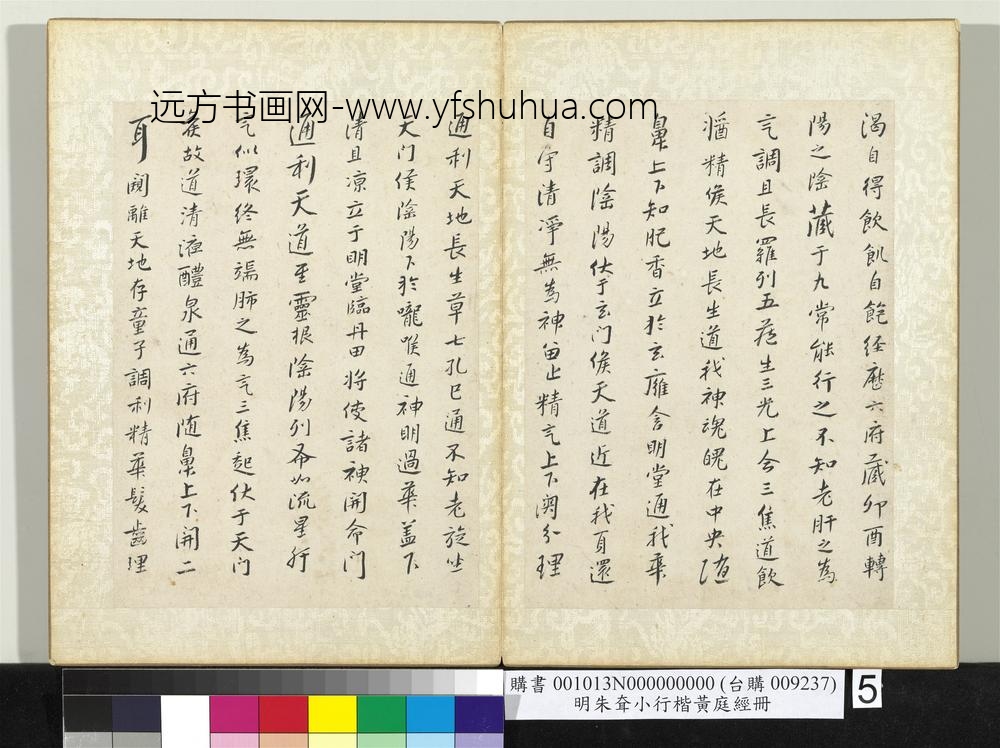 远方书画网-www.yfshuhua.com
渴自得飲飢自飽經歷六府藏卯酉轉
陽之陰藏于九常能行之不知老肝之為
气調且長羅列五藏生三光上合三焦道飲
醬精侯天地長生道我神魂魄在中央隨
鼻上下知肥香立於玄膺含明堂通我華
精調陰陽伏于玄門候天道近在我身還
自守清淨無為神留止精气上下關分理
通利天地長生草七孔已通不知老旋坐
天門侯陰陽下於嚨喉通神明過華蓋下
清且凉立于明堂臨丹田将使諸神開命門
通利天道至靈根陰陽列布如流星肝
气似環終無端肺之為气三焦起伏于天门
候故道清液醴泉通六府随鼻上下開二
耳闚離天地存童子調利精華髮齒理
購書 001013N000000000 (台購 009237)
明朱耷小行楷黃庭經冊
5